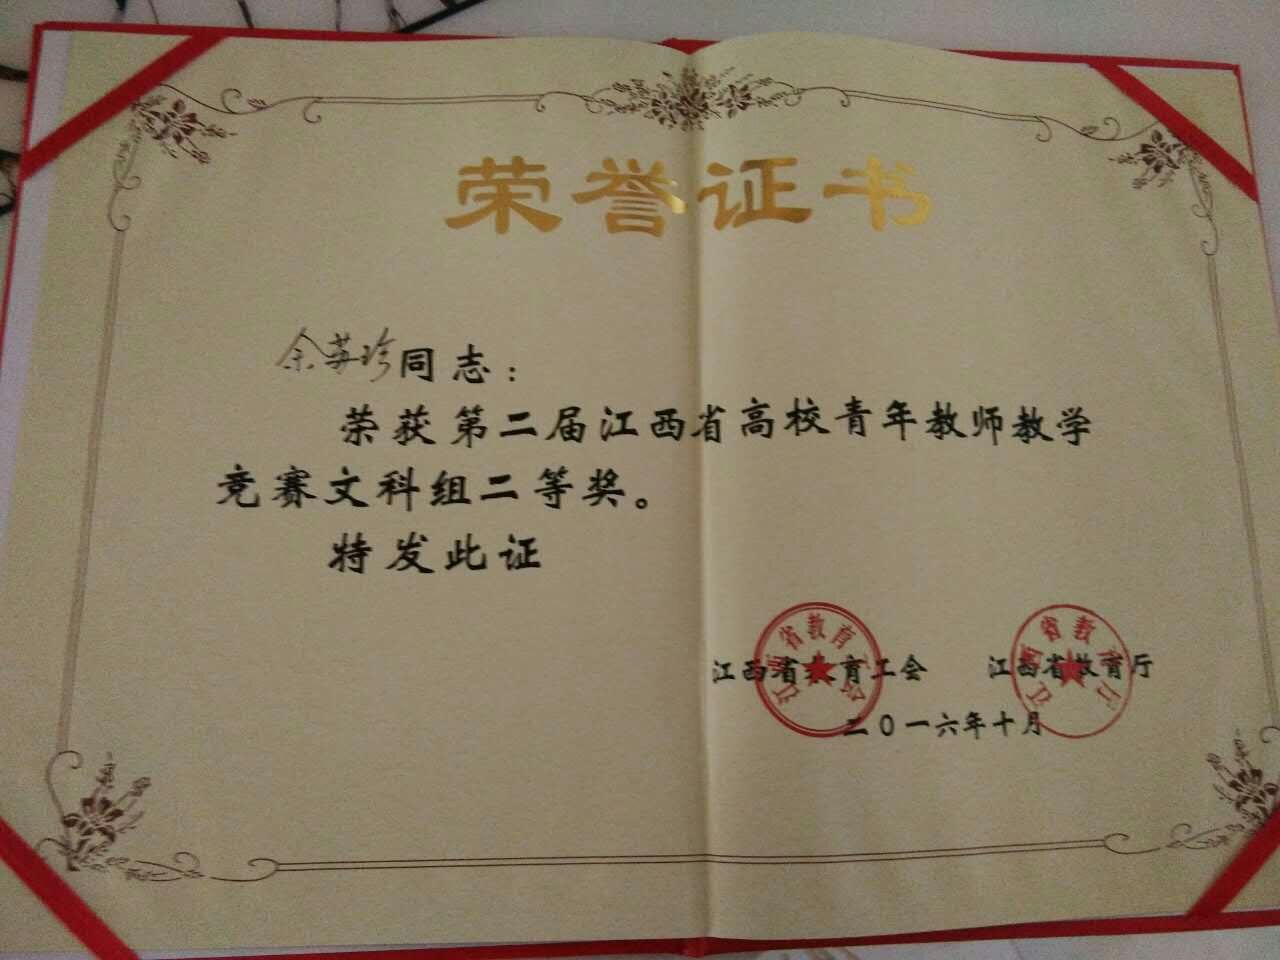 荣誉证书
余苏珍同志：
荣获第二届江西省高校青年教师教学
竞赛文科组二等奖。
特发此证
江西省教育工会 江西省教育厅
二〇一六年十月